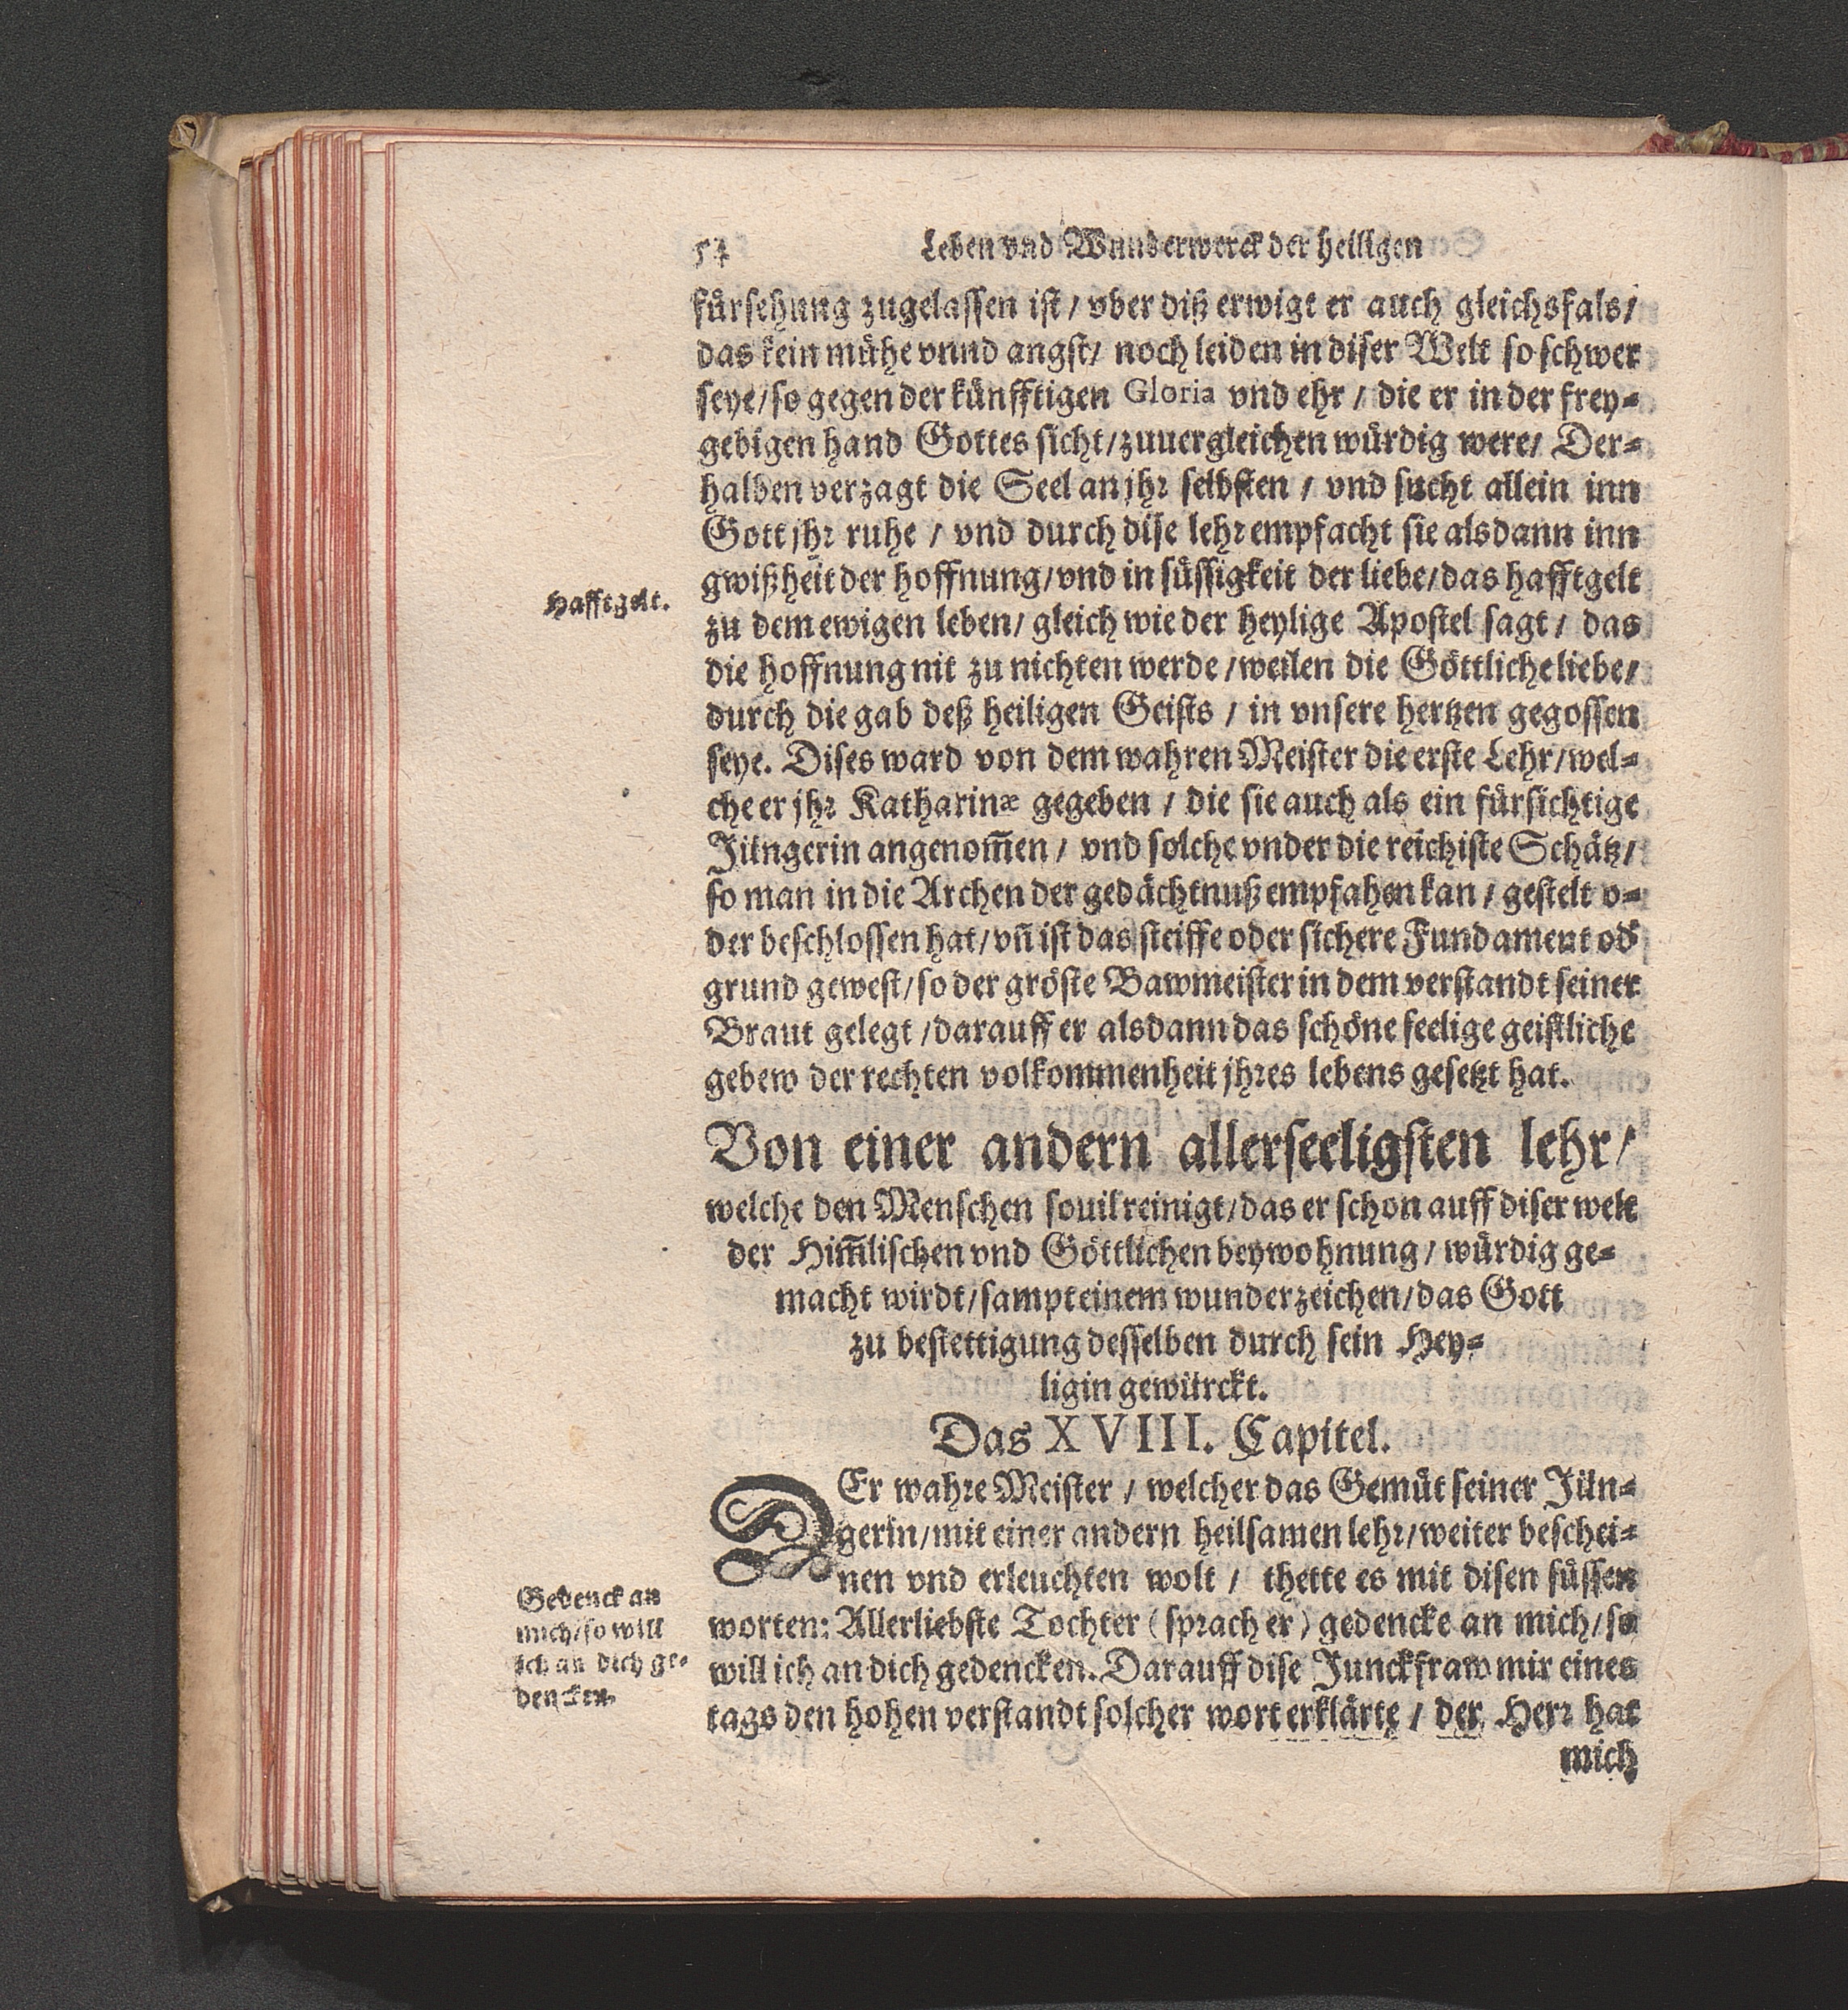 54 Leben vnd Wunderwerck der heiligen
fürsehung zugelassen ist / vber diß erwigt er auch gleichsfals /
das kein mühe vnnd angst / noch leiden in diser Welt so schwer
seye / so gegen der künfftigen Gloria vnd ehr / die er in der frey⸗
gebigen hand Gottes sicht / zuuergleichen würdig were / Der⸗
halben verzagt die Seel an jhr selbsten / vnd sucht allein inn
Gott jhr ruhe / vnd durch dise lehr empfacht sie alsdann inn
gwißheit der hoffnung / vnd in süssigkeit der liebe / das hafftgelt
Hafftgelt.
zu dem ewigen leben / gleich wie der heylige Apostel sagt / das
die hoffnung nit zu nichten werde / weilen die Göttliche liebe /
durch die gab deß heiligen Geists / in vnsere hertzen gegossen
seye. Dises ward von dem wahren Meister die erste Lehr / wel⸗
che er jhr Katharinæ gegeben / die sie auch als ein fürsichtige
Jüngerin angenom̃en / vnd solche vnder die reichiste Schätz /
so man in die Archen der gedächtnuß empfahen kan / gestelt o⸗
der beschlossen hat / vñ ist das steiffe oder sichere Fundament od̕
grund gewest / so der gröste Bawmeister in dem verstandt seiner
Braut gelegt / darauff er alsdann das schöne seelige geistliche
gebew der rechten volkommenheit jhres lebens gesetzt hat.
Von einer andern allerseeligsten lehr /
welche den Menschen souil reinigt / das er schon auff diser welt
der Him̃lischen vnd Göttlichen beywohnung / würdig ge⸗
macht wirdt / sampt einem wunderzeichen / das Gott
zu bestettigung desselben durch sein Hey⸗
ligin gewürckt.
Das XVIII. Capitel.
DEr wahre Meister / welcher das Gemüt seiner Jün⸗
gerin / mit einer andern heilsamen lehr / weiter beschei⸗
nen vnd erleuchten wolt / thette es mit disen süssen
worten: Allerliebste Tochter (sprach er) gedencke an mich / so
will ich an dich gedencken. Darauff dise Junckfraw mir eines
tags den hohen verstandt solcher wort erklärte / der Herr hat
Gedenck an
mich / so will
ich an dich ge⸗
dencken.
mich